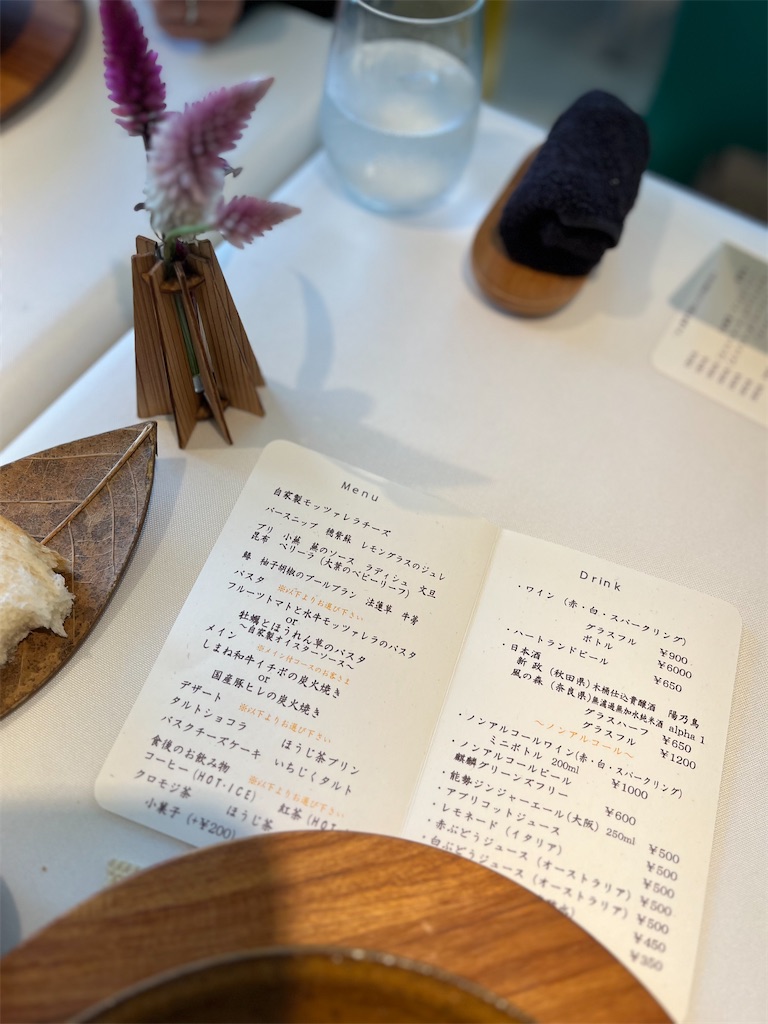 Menu
自家製モッツァレラチーズ
パースニップ 穂紫蘇 レモングラスのジュレ
ブリ 小蕪 蕪のソース ラディシュ 文旦
昆布 ベリーラ(大葉のベビーリーフ)
鰆 柚子胡椒のブールブラン 法蓮草 牛蒡
パスタ ※以下よりお選び下さい
フルーツトマトと水牛モッツァレラのパスタ
or
牡蠣とほうれん草のパスタ
〜自家製オイスターソース〜
メイン ※メイン付コースのお客さま
しまね和牛イチボの炭火焼き
or
国産豚ヒレの炭火焼き
デザート ※以下よりお選び下さい
タルトショコラ ほうじ茶プリン
バスクチーズケーキ いちじくタルト
食後のお飲み物 ※以下よりお選び下さい
コーヒー(HOT・ICE) 紅茶(HOT
クロモジ茶 ほうじ茶
小菓子(+¥200)
Drink
・ワイン(赤・白・スパークリング)
グラスフル ¥900
ボトル ¥6000
・ハートランドビール ¥650
・日本酒
新政(秋田県)木桶仕込貴醸酒 陽乃鳥
風の森(奈良県)無濾過無加水純米酒 alpha 1
グラスハーフ ¥650
グラスフル ¥1200
〜ノンアルコール〜
・ノンアルコールワイン(赤・白・スパークリング)
ミニボトル 200ml ¥1000
・ノンアルコールビール
麒麟グリーンズフリー ¥600
・能勢ジンジャーエール(大阪) 250ml ¥500
・アプリコットジュース ¥500
・レモネード(イタリア) ¥500
・赤ぶどうジュース(オーストラリア) ¥500
・白ぶどうジュース(オーストラリア) ¥500
¥450
¥350